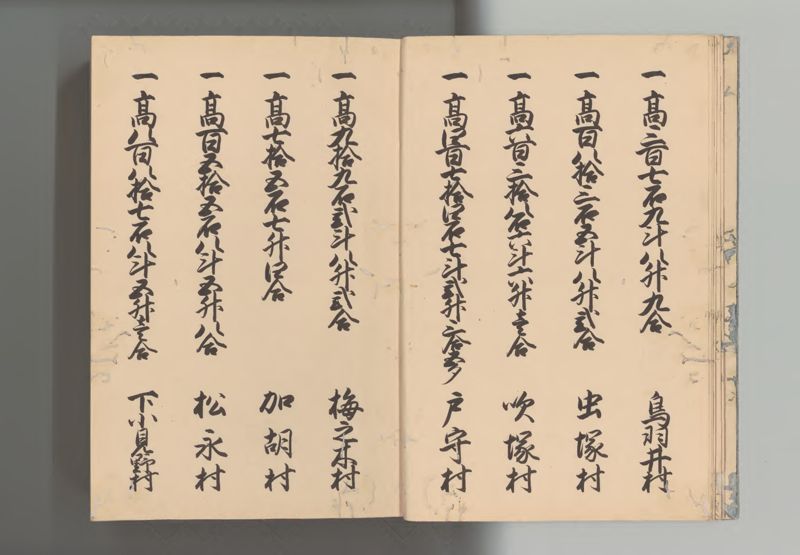 一高三百七石九斗八升九合 鳥羽井村
一高百八拾三石五斗八升弐合 虫塚村
一高六百三拾八石六斗六升壱合 吹塚村
一高四百七拾四石七斗弐升三合五夕 戸守村
一高九拾九石弐斗八升弐合 梅之木村
一高七拾五石七升四合 加胡村
一高百五拾五石八斗五升八合 松永村
一高八百八拾七石八斗五升壱合 下小見野村